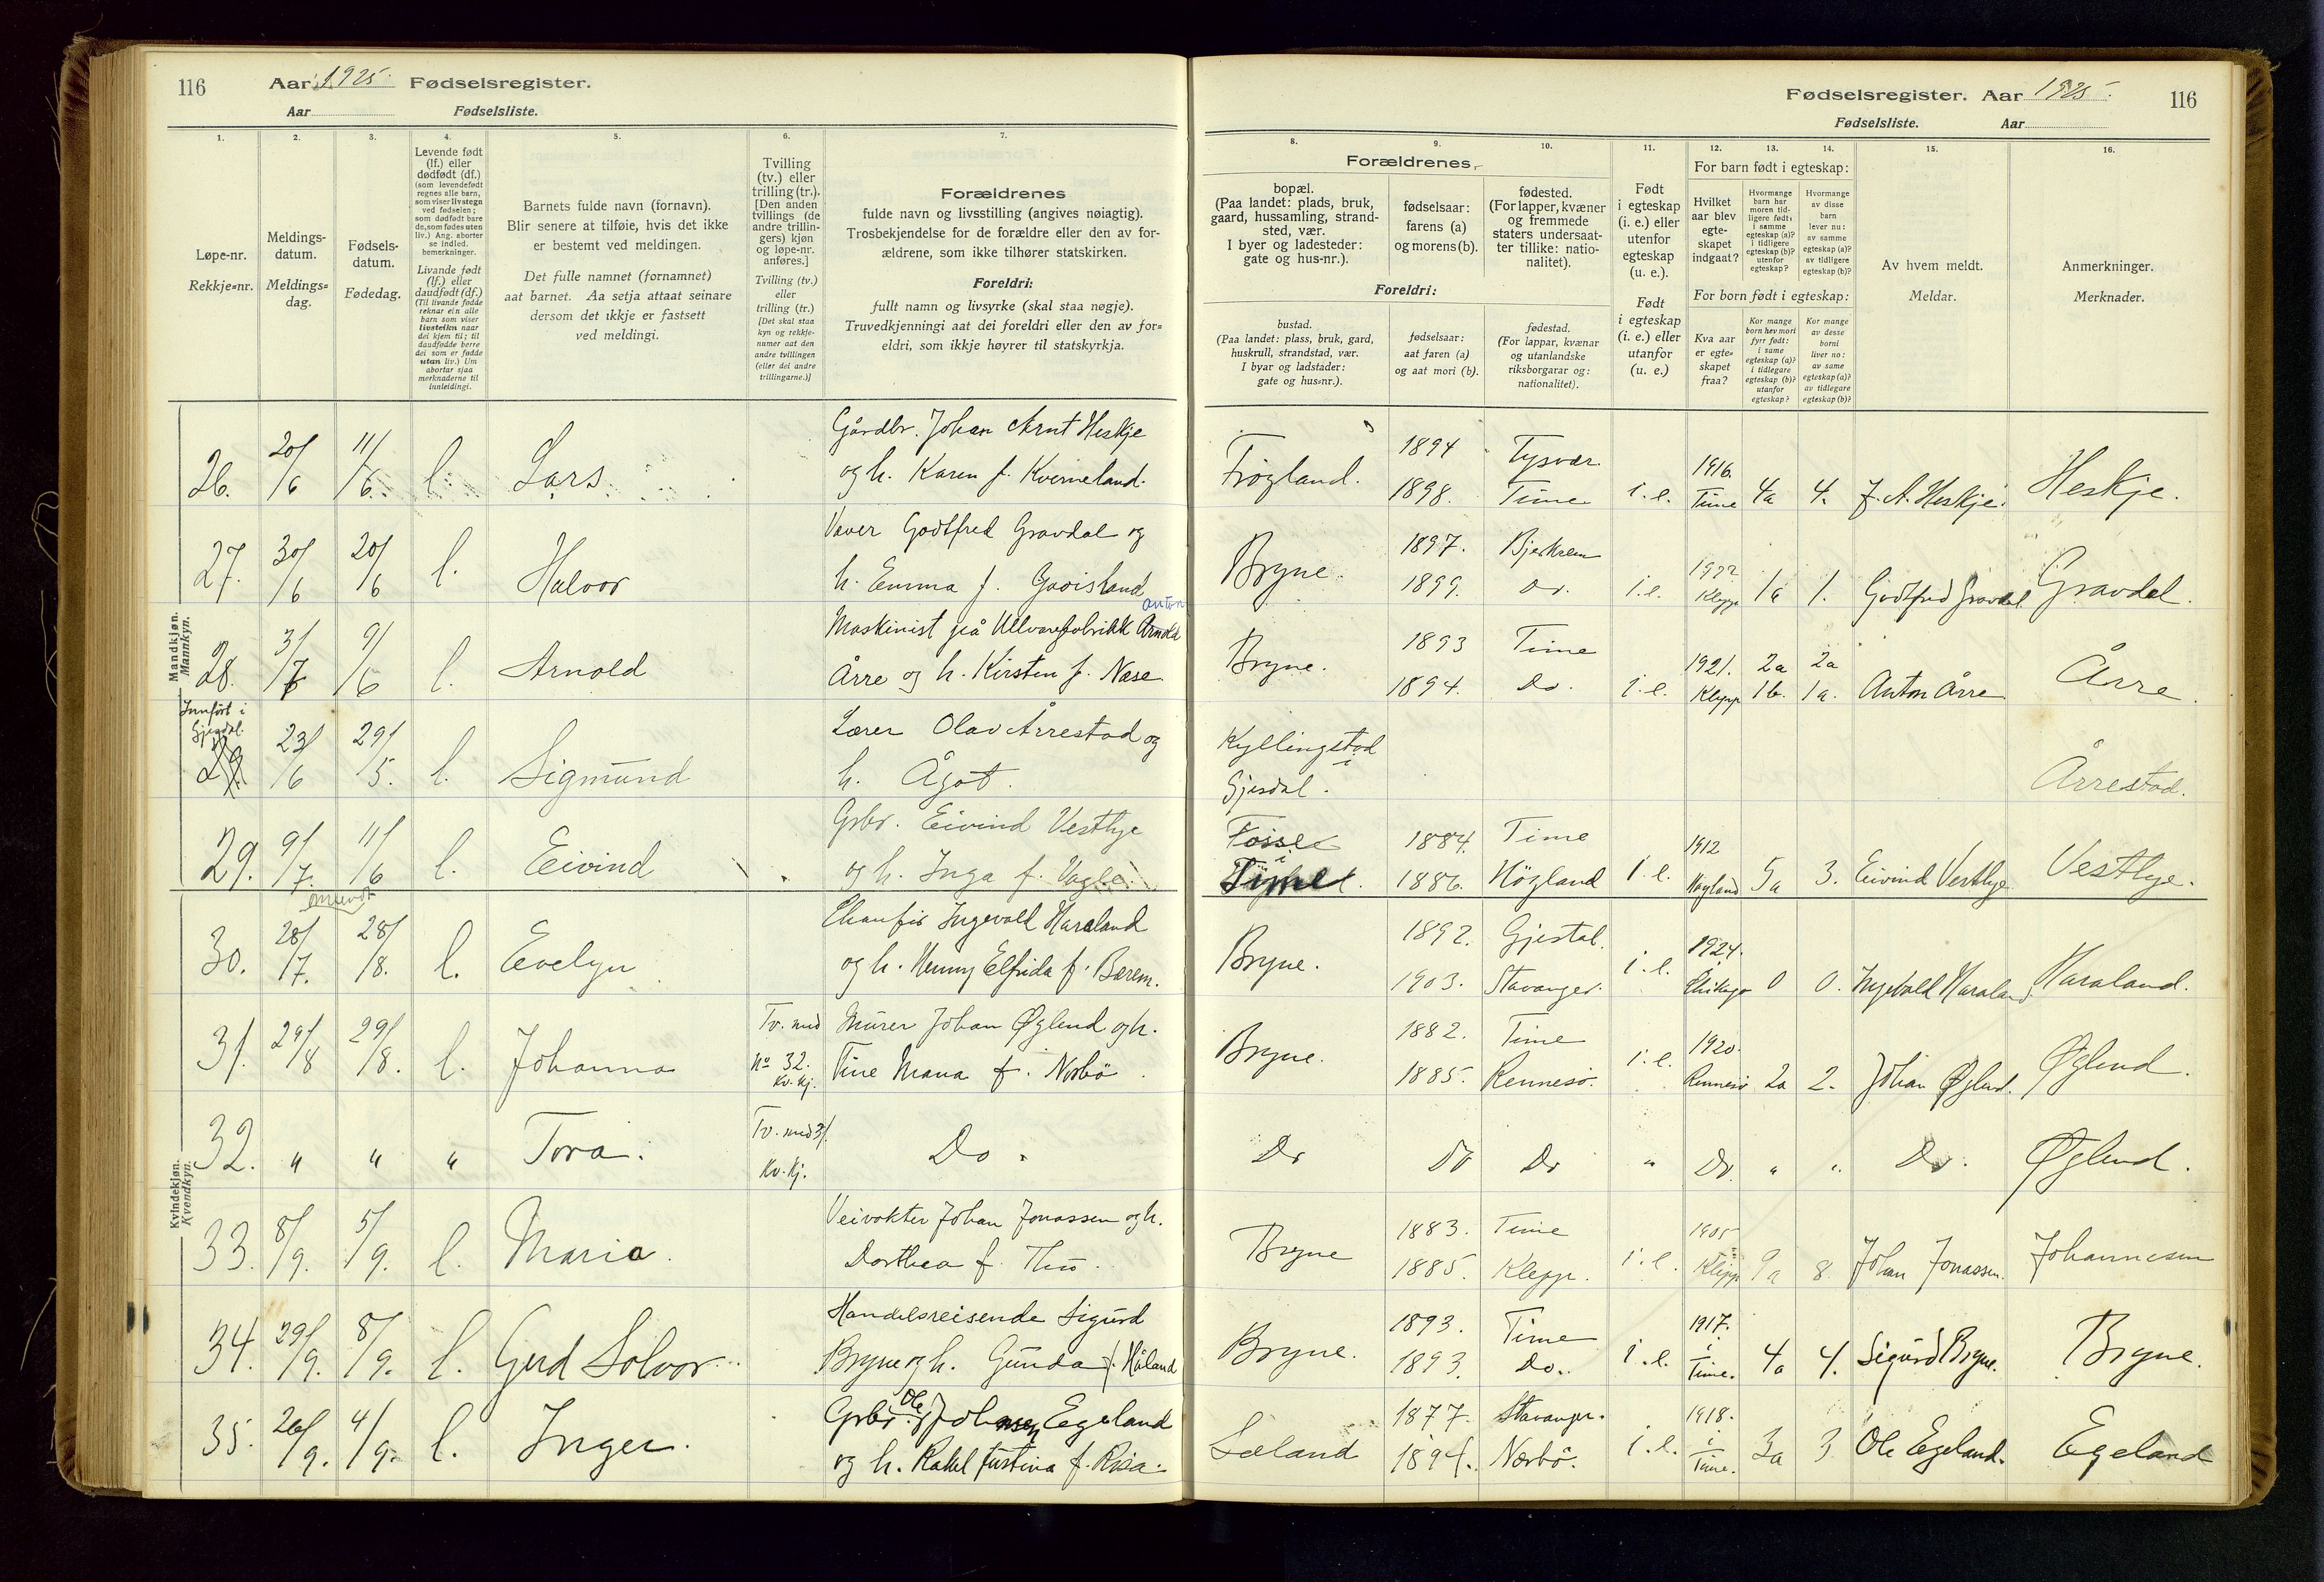 116 Aar 1925 Fødselsregister.
Aar Fødselsliste.
1. 2. 3. 4. 5. 6. 7.
Løpe-nr.
Rekkje-nr.
Meldings-
datum.
Meldings-
dag.
Fødsels-
datum.
Fødedag.
Levende født
(lf.) eller
dødfødt (df.)
(som levendefødt
regnes alle barn,
som viser livstegn
ved fødselen;
som dødfødt bare
de, som fødes uten
liv.) Ang. aborter
se indled.
bemerkninger.
Livande født
(lf.) eller
daudfødt (df.)
(Til livande fødde
reknar ein alle
barn som viser
livsteikn naar
dei kjem til; til
daudfødde berre
dei som er fødde
utan liv.) Um
abortar sjaa
merknaderne til
innleidingi.
Barnets fulde navn (fornavn).
Blir senere at tilføie, hvis det ikke
er bestemt ved meldingen.
Det fulle namnet (fornamnet)
aat barnet. Aa setja attaat seinare
dersom det ikkje er fastsett
ved meldingi.
Tvilling
(tv.) eller
trilling (tr.).
[Den anden
tvillings (de
andre trillin-
gers) kjøn
og løpe-nr.
anføres.]
Tvilling (tv.)
eller
trilling (tr.)
[Det skal staa
kyn og rekkje-
numer aat den
andre tvillingen
(eller dei andre
trillingarne.)]
Forældrenes
fulde navn og livsstilling (angives nøiagtig).
Trosbekjendelse for de forældre eller den av for-
ældrene, som ikke tilhører statskirken.
Foreldri:
fullt namn og livsyrke (skal staa nøgje).
Truvedkjenningi aat dei foreldri eller den av for-
eldri, som ikkje høyrer til statskyrkja.
Mandkjøn.
Mannkyn.
26. 20/6 11/6. l. Lars. Gårdbr. Johan Arnt Heskje
og h. Karen f. Kverneland.
27. 30/6 20/6 l. Halvor Vever Godtfred Gravdal og
h. Emma f. Gaoisland
anton
28. 3/7 9/6 l. Arnold Maskinist på Ullvarefabrikk Arnold
Årre og h. Kirsten f. Næse
Innført i
Gjesdal.
29. 23/6 29/5. l. Sigmund Lærer Olav Årrestad og
h. Ågot.
29. 9/7. 11/6 l. Eivind Grbr. Eivind Vestlye
og h. Inga f. Vagle.
Kvindekjøn.
Kvendkyn.
30. 28/7. 28/8. l. Evelyn Chaufør Ingevald Haraland
og h. Henny Elfrida f. Bærem.
31. 29/8 29/8. l. Johanna Tv. med Nº 32. Kv. kj. Murer Johan Øglend og h.
Tine Maria f. Norbö
32. " " " Tora. Tv. med 31. Kv. kj. Do.
33. 8/9. 5/9. l. Maria. Veivokter Johan Jonassen og h.
Dorthea f. Thu.
34. 29/9. 8/9. l. Gerd Solvor Handelsreisende Sigurd
Bryne og h. Gunda f. Håland
35. 26/9. 4/9. l. Inger. Grbr. Ole Johansen Egeland
og h. Rakel Justina f. Risa.
Fødselsregister. Aar 1925. 116
Fødselsliste. Aar
8. 9. 10. 11. 12. 13. 14. 15. 16.
Forældrenes,
bopæl.
(Paa landet: plads, bruk,
gaard, hussamling, strand-
sted, vær.
I byer og ladesteder:
gate og hus-nr.).
fødselsaar:
farens (a)
og morens (b).
fødested.
(For lapper, kvæner
og fremmede
staters undersaat-
ter tillike: natio-
nalitet).
Foreldri:
bustad.
(Paa landet: plass, bruk, gard,
huskrull, strandstad, vær.
I byar og ladstader:
gate og hus-nr.).
fødselsaar:
aat faren (a)
og aat mori (b).
fødestad.
(For lappar, kvænar
og utanlandske
riksborgarar og:
nationalitet).
Født
i egteskap
(i. e.) eller
utenfor
egteskap
(u. e.).
Født
i egteskap
(i. e.) eller
utanfor
(u. e.)
For barn født i egteskap:
Hvilket
aar blev
egte-
skapet
indgaat?
Hvormange
barn har
moren tid-
ligere født:
i samme
egteskap (a)?
i tidligere
egteskap (b)?
utenfor
egteskap?
Hvormange
av disse
barn
lever nu:
av samme
egteskap (a)?
av tidligere
egteskap (b)?
For born født i egteskap:
Kva aar
er egte-
skapet
fraa?
Kor mange
born hev mori
fyrr født:
i same
egteskap (a)?
i tidlegare
egteskap (b)?
utanfor
egteskap?
Kor mange
av desse
borni
liver no:
av same
egteskap (a)?
av tidlegare
egteskap (b)?
Av hvem meldt.
Meldar.
Anmerkninger.
Merknader.
Frøgland. 1894 1898. Tysvær Time i. e. 1916. Time 4a 4. J. A. Heskje. Heskje.
Bryne. 1897. 1899. Bjerkrem Do. i. e. 1922 Klepp 1a 1. Godtfred Gravdal Gravdal.
Bryne. 1893 1894. Time Do. i. e. 1921. Klepp 2a 1b. 2a 1a. Anton Årre Årre
Kyllingstad
i
Gjesdal. Årrestad.
Fosse
i
Time. 1884. 1886. Time Högland i. e. 1912 Høgland 5a 3. Eivind Vestlye Vestlye.
Bryne. 1892. 1903. Gjestal. Stavanger. i. e. 1924. i Chikago 0 0. Ingevald Haraland Haraland.
Bryne. 1882. 1885. Time Rennesö. i. e. 1920. Rennesö 2a 2. Johan Øglend. Øglend.
Do Do Do " Do. " " Do. Øglend.
Bryne 1883. 1885. Time Klepp. i. e. 1905 Klepp 9a 8 Johan Jonassen. Johannesen
Bryne. 1893. 1893. Time Do. i. e. 1917. i Time. 4a 4. Sigurd Bryne. Bryne.
Læland 1877. 1894. Stavanger. Nærbö. i. e. 1918. i Time. 3a 3 Ole Egeland. Egeland